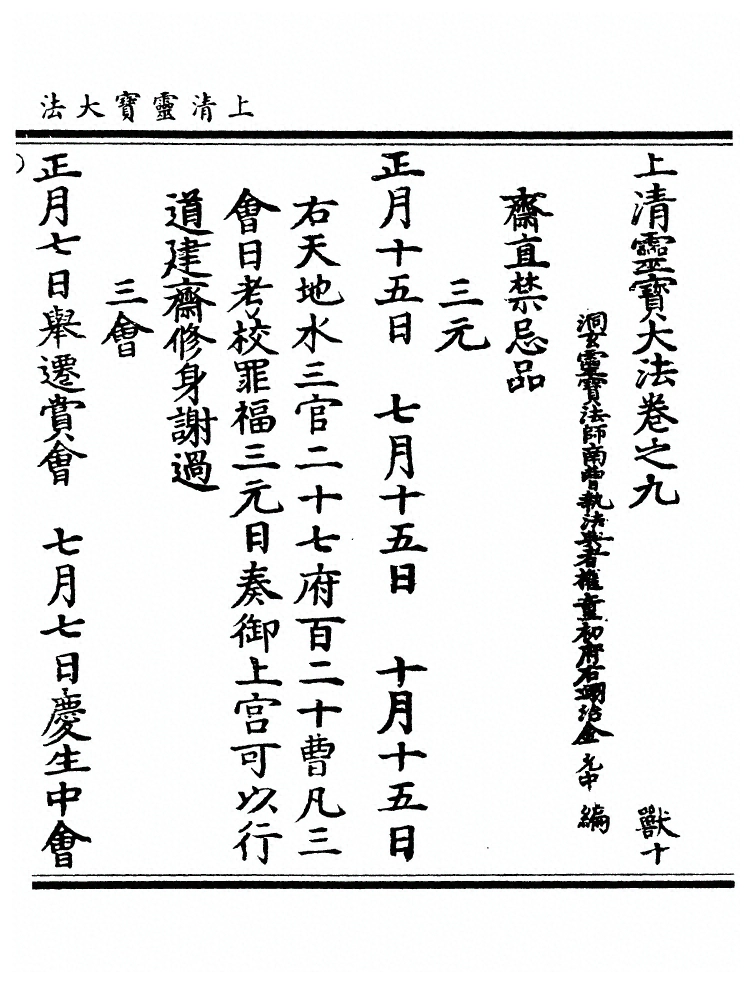 上清靈寶大法
上清靈寶大法卷之九 獸十
洞玄靈寶法師南曹執法典者權童初府右翊治金允中編
齋直禁忌品
三元
正月十五日 七月十五日 十月十五日
右天地水三官二十七府百二十曹凡三
會日考校罪福三元日奏御上宮可以行
道建齋修身謝過
三會
正月七日舉遷賞會 七月七日慶生中會